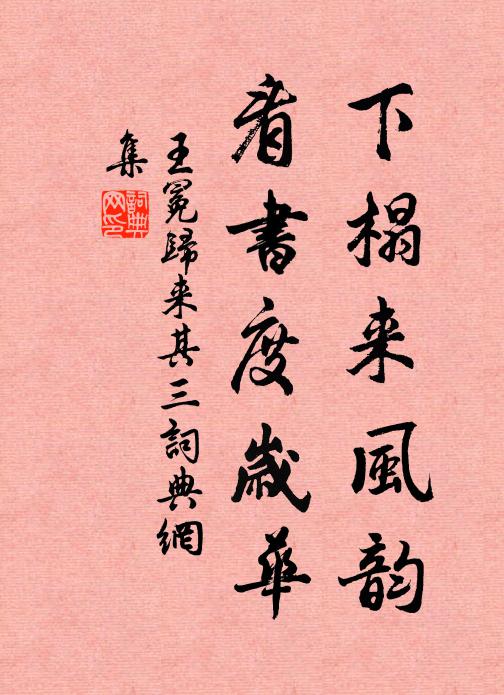 下榻来風韵
看書度歲華
王冕歸来其三詞典網
集
詞典
网印